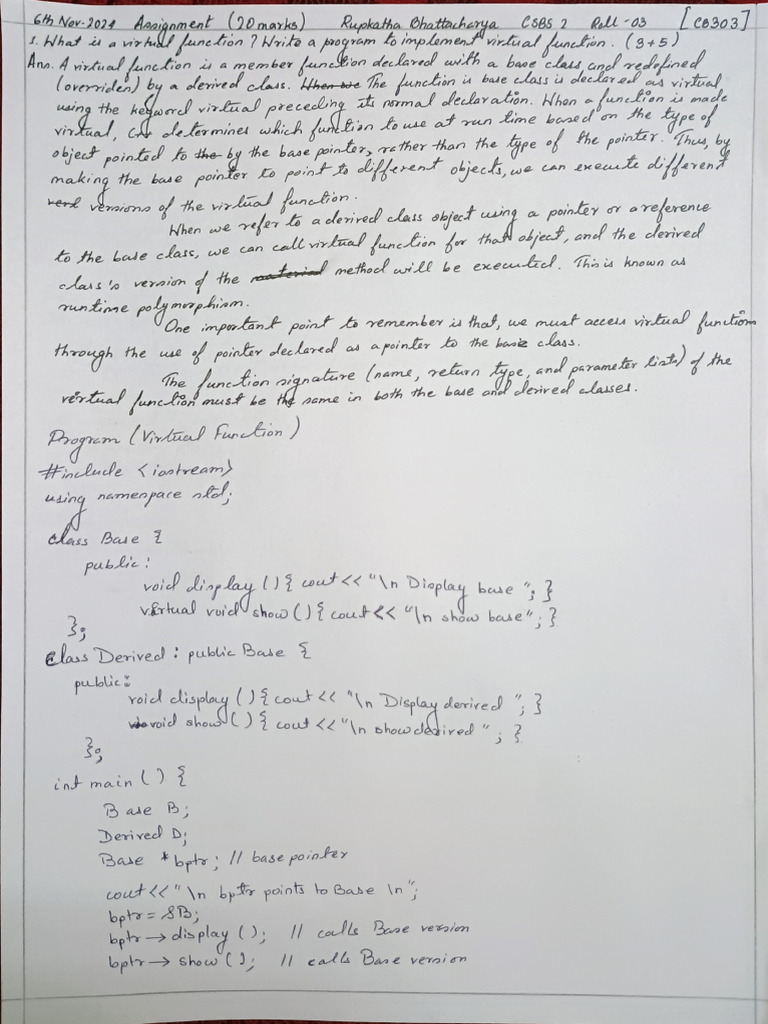 6th Nov-2024 Assignment (20 marks) Rupkatha Bhattacharya CSBS 2 Roll-03 [CB303]
1. What is a virtual function? Write a program to implement virtual function. (3+5)
Ans. A virtual function is a member function declared with a base class and redefined
(overriden) by a derived class. When we The function is base class is declared as virtual
using the keyword virtual preceding its normal declaration. When a function is made
virtual, C++ determines which function to use at run time based on the type of
object pointed to the by the base pointer, rather than the type of the pointer. Thus, by
making the base pointer to point to different objects, we can execute different
versions of the virtual function.
When we refer to a derived class object using a pointer or a reference
to the base class, we can call virtual function for that object, and the derived
class's version of the material method will be executed. This is known as
runtime polymorphism.
One important point to remember is that, we must access virtual functions
through the use of pointer declared as a pointer to the base class.
The function signature (name, return type, and parameter lists) of the
virtual function must be the same in both the base and derived classes.
Program (Virtual Function)
#include <iostream>
using namespace std;
class Base {
public:
void display () { cout << "\n Display base "; }
virtual void show () { cout << "\n show base"; }
};
class Derived : public Base {
public:
void display () { cout << "\n Display derived "; }
void show () { cout << "\n show derived " ; }
};
int main () {
Base B;
Derived D;
Base *bptr; // base pointer
cout << "\n bptr points to Base \n";
bptr = &B;
bptr → display (); // calls Base version
bptr → show (); // calls Base version